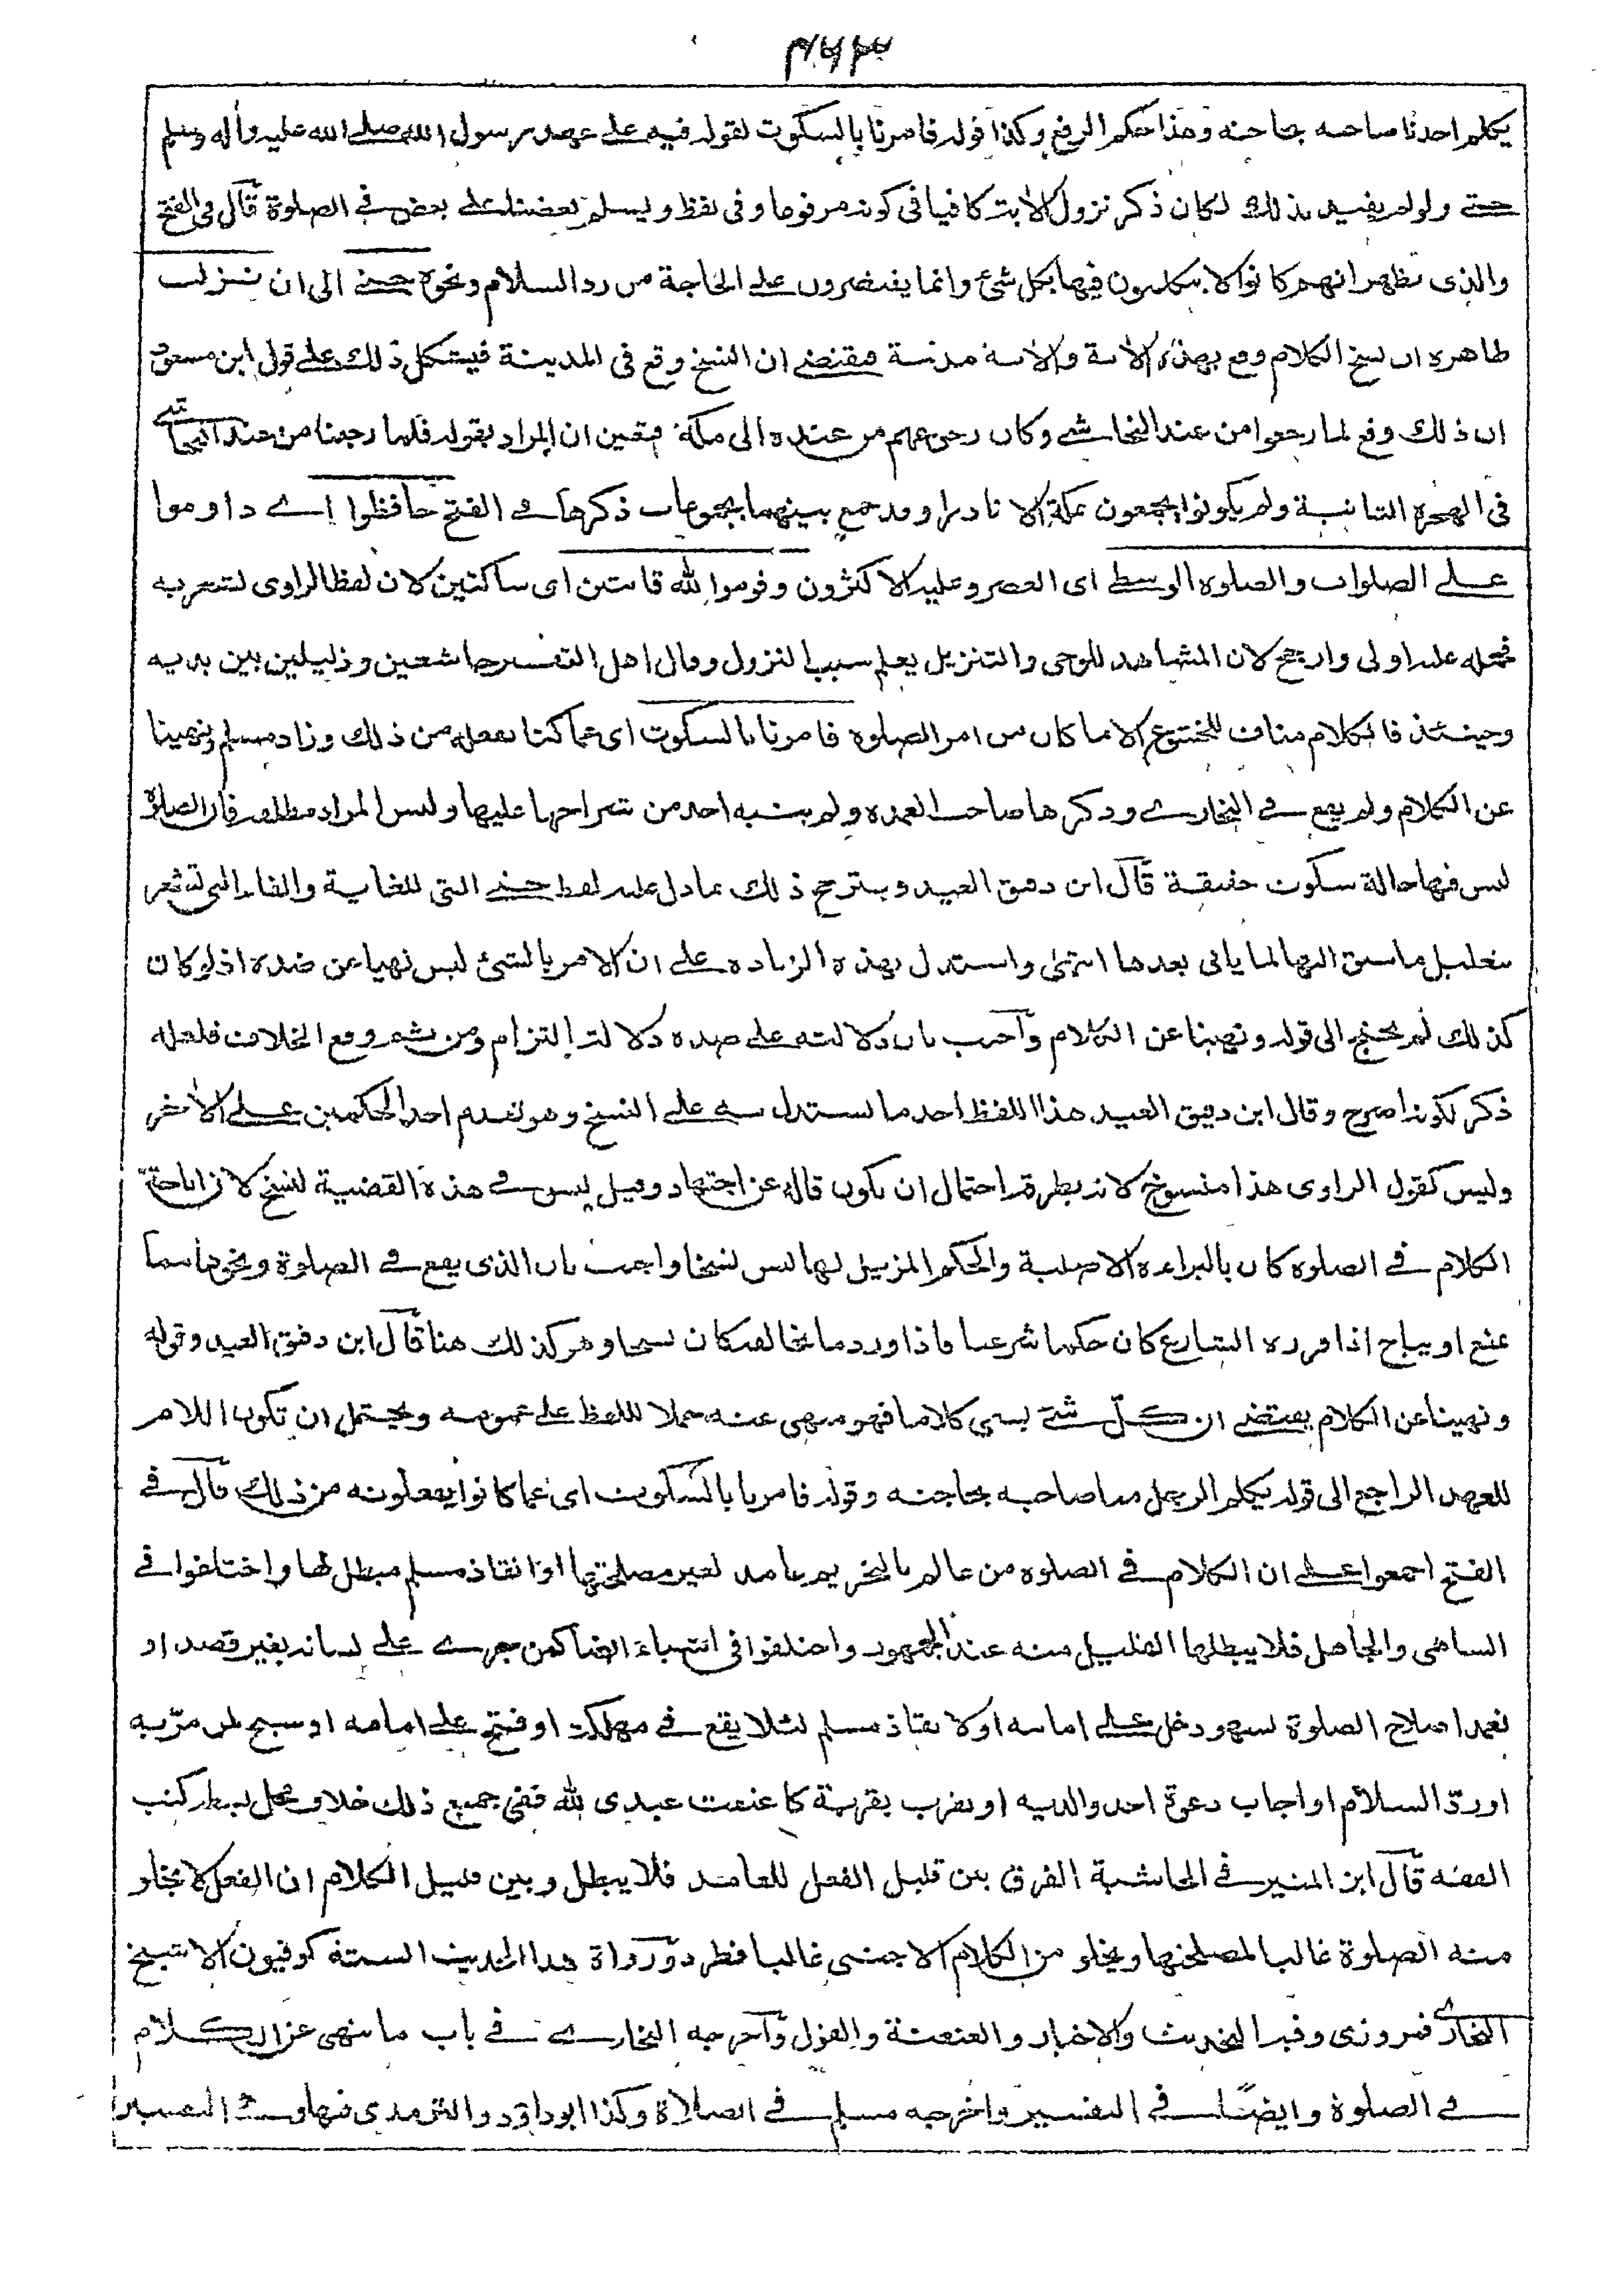 يكلم احدنا صاحبه بحاجته وهذا حكم الرفع وكذا قوله فامرنا بالسكوت لقوله فيه على عهد رسول الله صلى الله عليه وآله وسلم
حتى ولو لم يقيد بذلك لكان ذكر نزول الآية كافيا فى كونه مرفوعا وفى لفظ ويسلم بعضنا على بعض فى الصلوة قال فى الفتح
والذى يظهر انهم كانوا لا يتكلمون فيها بكل شئ وانما يقتصرون على الحاجة من رد السلام ونحوه حتى الى ان نزلت
ظاهره ان نسخ الكلام وقع بهذه الآية والآية مدنية فيقتضى ان النسخ وقع فى المدينة فيشكل ذلك على قول ابن مسعود
ان ذلك وقع لما رجعوا من عند النجاشى وكان رجوعهم من عنده الى مكة فتعين ان المراد بقوله فلما رجعنا من عند النجاشى
فى الهجرة الثانية ولم يكونوا يجمعون بمكة الا نادرا وقد جمع بينهما بجموعات ذكرها فى الفتح حافظوا اى داوموا
على الصلوات والصلوة الوسطى اى العصر وعليه الاكثرون وقوموا لله قانتين اى ساكتين لان لفظ الراوى تشعر به
فحمله عليه اولى وارجح لان المشاهد للوحى والتنزيل يعلم سبب النزول وقال اهل التفسير خاشعين وذليلين بين يديه
وحينئذ فالكلام مناف للخشوع الا ما كان من امر الصلوة فامرنا بالسكوت اى عما كنا نفعله من ذلك وزاد مسلم ونهينا
عن الكلام ولم يقع فى البخارى وذكرها صاحب العمدة ولم ينبه احد من شراحها عليها وليس المراد مطلقه فان الصلاة
ليس فيها حالة سكوت حقيقة قال ابن دقيق العيد ويترجح ذلك بما دل عليه لفظ حتى التى للغاية والفاء التى تشعر
بتعليل ما سبق اليها لما ياتى بعدها انتهى واستدل بهذه الزيادة على ان الامر بالشئ ليس نهيا عن ضده اذ لو كان
كذلك لم يحتج الى قوله ونهينا عن الكلام وآجيب بان دلالته على ضده دلالة التزام ومن ثم وقع الخلاف فلعله
ذكر لكونه اصرح وقال ابن دقيق العيد هذا اللفظ احد ما يستدل به على النسخ وهو تقدم احد الحكمين على الآخر
وليس كقول الراوى هذا منسوخ لانه يطرقه احتمال ان يكون قاله عن اجتهاد وقيل ليس فى هذه القضية لنسخ لان اباحة
الكلام فى الصلوة كان بالبراءة الاصلية والحكم المزيل لها ليس نسخا واجيب بان الذى يقع فى الصلوة ونحوها مما
يمنع او يباح اذا قرره الشارع كان حكما شرعيا فاذا ورد ما يخالفه كان نسخا وهو كذلك هنا قال ابن دقيق العيد وقوله
ونهينا عن الكلام يقتضى ان كل شئ يسمى كلاما فهو منهى عنه حملا للفظ على عمومه ويحتمل ان تكون اللام
للعهد الراجع الى قوله يكلم الرجل منا صاحبه بحاجته وقوله فامرنا بالسكوت اى عما كانوا يفعلونه من ذلك قال فى
الفتح اجمعوا على ان الكلام فى الصلوة من عالم بالتحريم عامد لغير مصلحتها او انقاذ مسلم مبطل لها واختلفوا فى
الساهى والجاهل فلا يبطلها القليل منه عند الجمهور واختلفوا فى اشياء ايضا كمن جرى على لسانه بغير قصد او
تعمد اصلاح الصلوة لسهو دخل على امامه او لانقاذ مسلم لئلا يقع فى مهلكة او فتح على امامه او سبح لمن مر به
اورد السلام او اجاب دعوة احد والديه او تقرب بقربة كاعتقت عبدى لله ففى جميع ذلك خلاف محل بسطه كتب
الفقه قال ابن المنير فى الحاشية الفرق بين قليل الفعل للعامد فلا يبطل وبين قليل الكلام ان الفعل لا يخلو
منه الصلوة غالبا لمصلحتها ويخلو من الكلام الاجنبى غالبا مطردا ورواة هذا الحديث الستة كوفيون الا شيخ
البخارى فمروزى وفيه التحديث والاخبار والعنعنة والقول وآخرجه البخارى فى باب ما ينهى عن الكلام
فى الصلوة وايضا فى التفسير واخرجه مسلم فى الصلاة وكذا ابو داود والترمذى فيها وفى التفسير